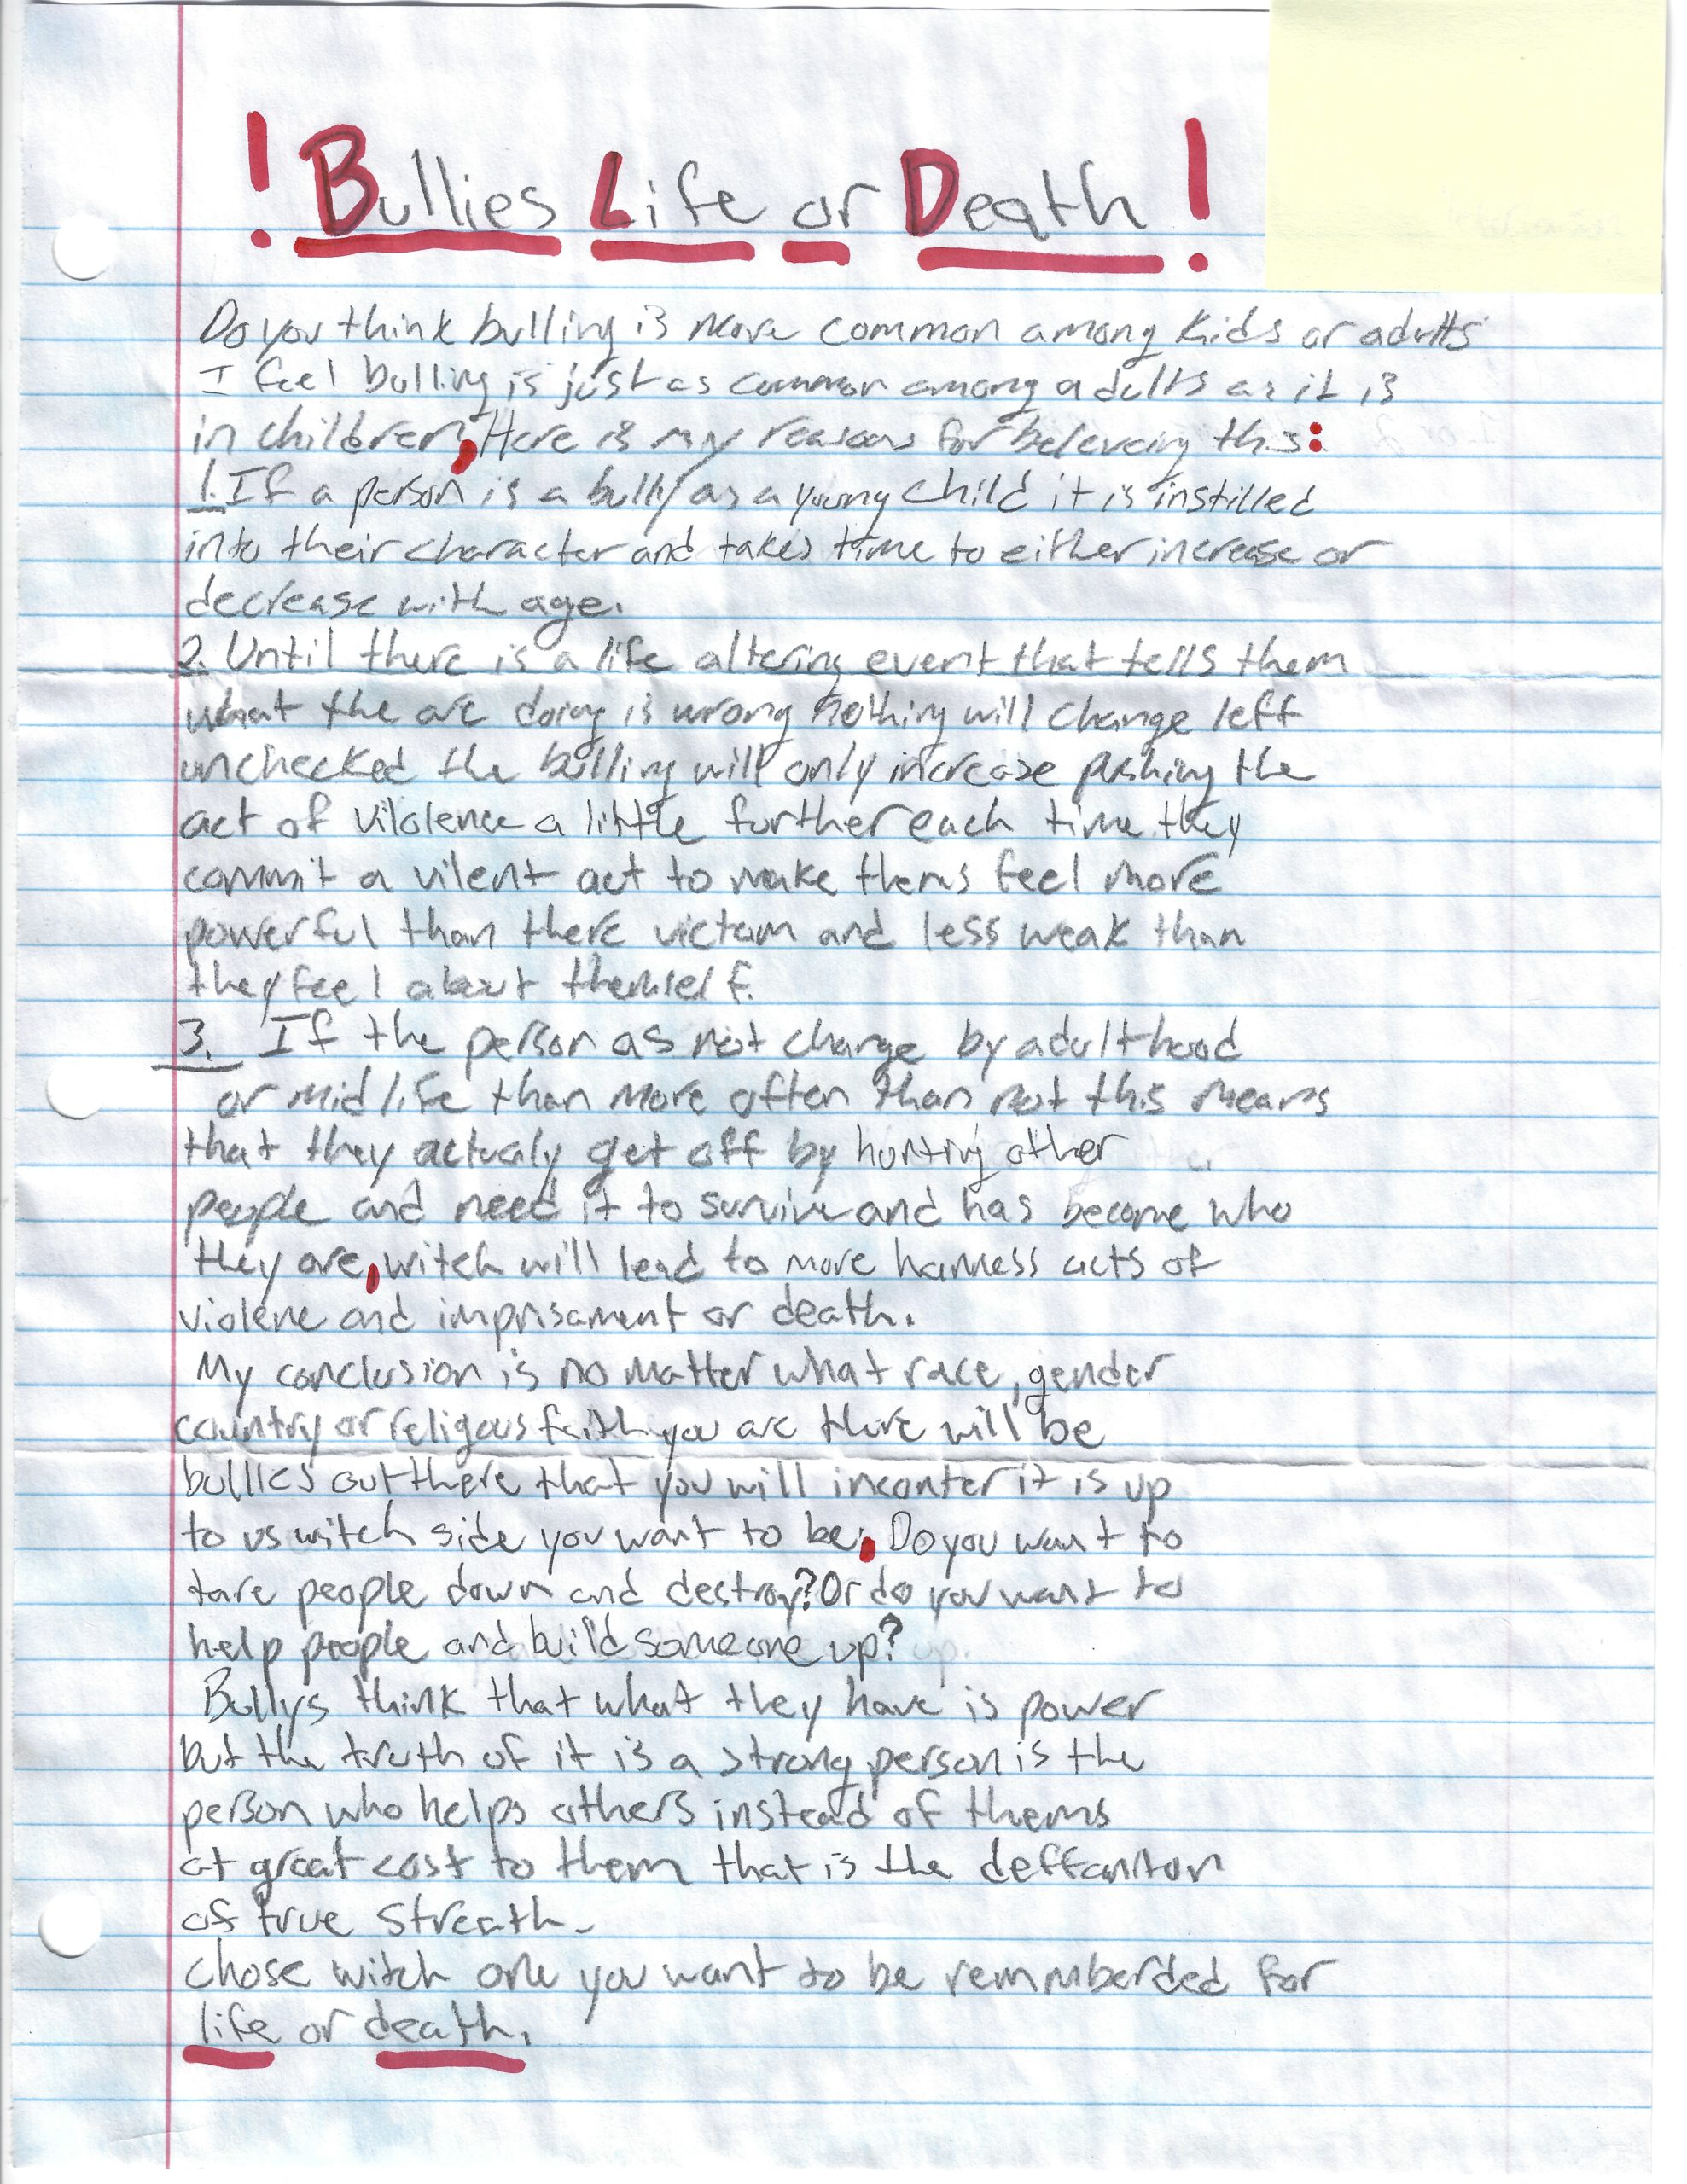 ! Bullies Life or Death !
Do you think bulling is more common among kids or adults
I feel bulling is just as common among adults as it is
in children, Here is my reasons for beleveing this:
1. If a person is a bully as a young child it is instilled
into their character and takes time to either increase or
decrease with age.
2. Until there is a life altering event that tells them
what the are doing is wrong nothing will change left
unchecked the bulling will only increase pushing the
act of vilolence a little further each time they
commit a vilent act to make thems feel more
powerful than there victam and less weak than
they feel about themself.
3. If the person as not change by adulthood
or mid life than more often than not this means
that they actualy get off by hurting other
people and need it to survive and has become who
they are, witch will lead to more hanness acts of
violene and imprisament or death.
My conclusion is no matter what race, gender
country or religous faith you are there will be
bullies out there that you will inconter it is up
to us witch side you want to be. Do you want to
tare people down and destroy? Or do you want to
help people and build someone up?
Bullys think that what they have is power
but the truth of it is a strong person is the
person who helps others instead of thems
at great cost to them that is the deffaniton
of true streath.
chose witch one you want to be remmberded for
life or death.